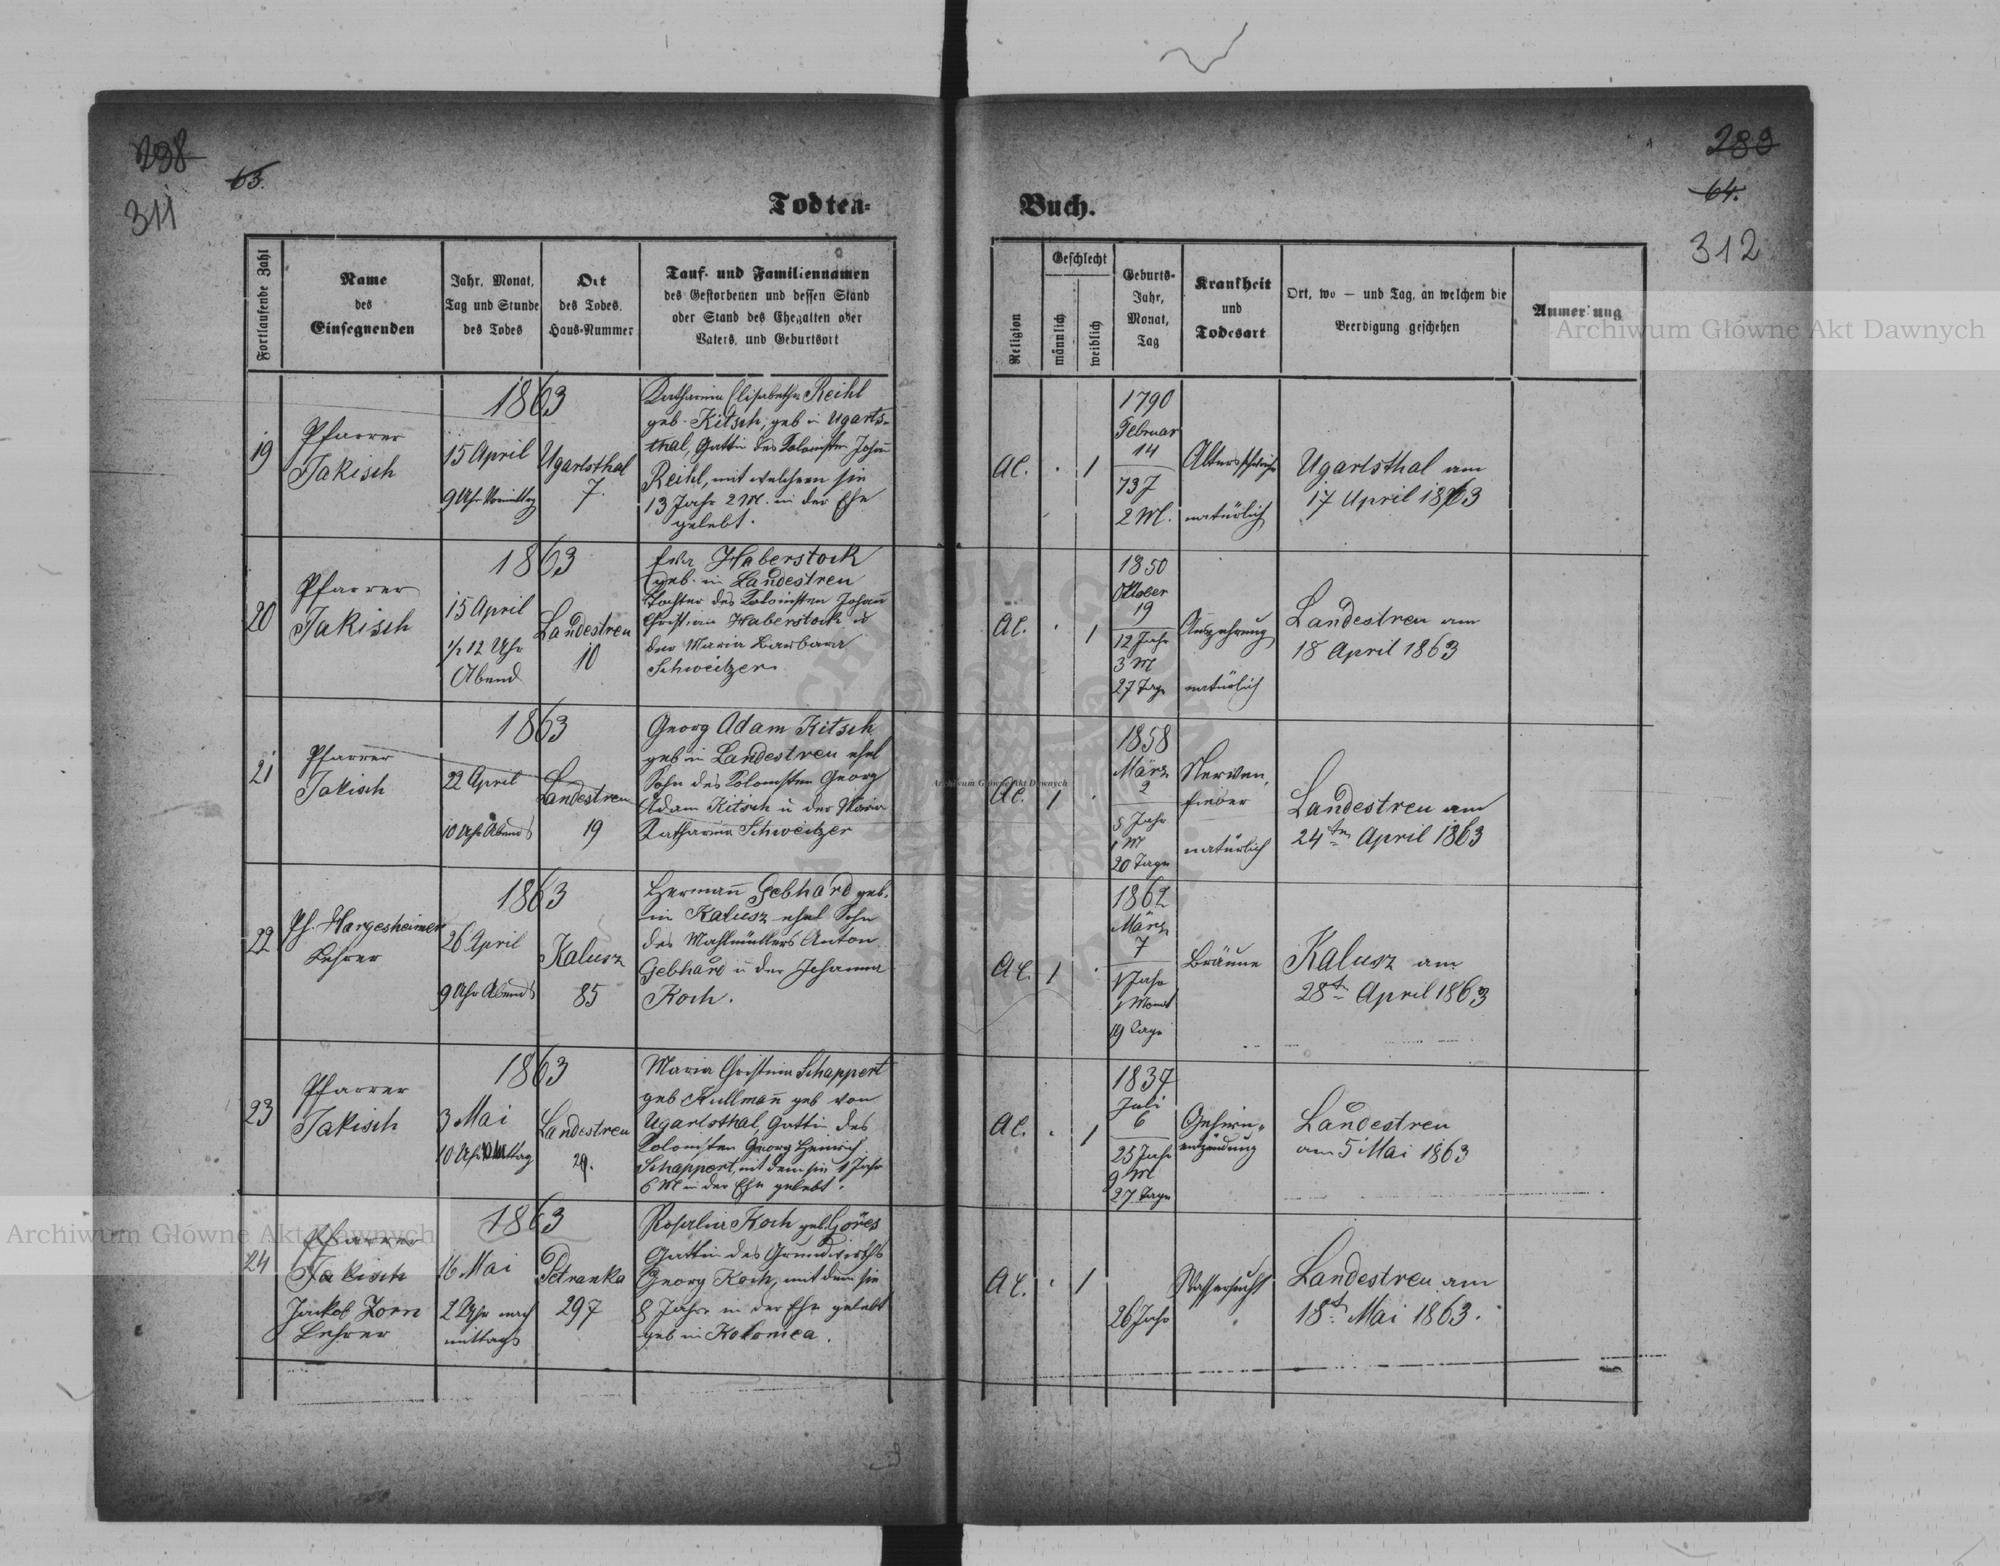 298
63.
311
Todten-
Fortlaufende Zahl
Name
des
Einsegnenden
Jahr, Monat,
Tag und Stunde
des Todes
Ort
des Todes.
Haus-Nummer
Tauf- und Familiennamen
des Gestorbenen und dessen Stand
oder Stand des Ehegatten oder
Vaters, und Geburtsort
19
Pfarrer
Jakisch
1863
15 April
9 Uhr Vormittag
Ugartsthal
7.
Katharina Elisabetha Reihl
geb. Kitsch, geb in Ugarts-
thal, Gattin des Kolonisten Johan̅
Reihl, mit welchem sie
13 Jahr 2 M. in der Ehe
gelebt.
20
Pfarrer
Jakisch
1863
15 April
1/2 12 Uhr
Abend
Landestreu
10
Eva Haberstock
geb. in Landestreu
Tochter des Kolonisten Johan̅
Christian Haberstock u
der Maria Barbara
Schweitzer
21
Pfarrer
Jakisch
1863
22 April
10 Uhr Abends
Landestreu
19
Georg Adam Kitsch
geb in Landestreu ehel
Sohn des Kolonisten Georg
Adam Kitsch u der Maria
Katharina Schweitzer
22
Pf. Hargesheimer
Lehrer
1863
26 April
9 Uhr Abends
Kalusz
85
Herman̅ Gebhard geb.
in Kalusz ehel Sohn
des Mahlmüllers Anton
Gebhard u der Johanna
Koch.
23
Pfarrer
Jakisch
1863
3 Mai
10 Uhr
Landestreu
29.
Maria Christina Schappert
geb Kullman̅ geb von
Ugartsthal, Gattin des
Kolonisten Georg Heinrich
Schappert, mit dem sie 1 Jahr
6 M in der Ehe gelebt.
24
Pfarrer
Jakisch
Jackob Zorn
Lehrer
1863
16 Mai
2 Uhr nach
mittags
Petranka
297
Rosalia Koch geb. Göres
Gattin des Grundwirths
Georg Koch, mit dem sie
8 Jahre in der Ehe gelebt
geb in Kolomea.
289
64.
312
Buch.
Religion
Geschlecht
männlich
weiblich
Geburts-
Jahr,
Monat,
Tag
Krankheit
und
Todesart
Ort, wo — und Tag, an welchem die
Beerdigung geschehen
Anmerkung
AC.
1
1790
Februar
14
73 J
2 M.
Altersschwäche
natürlich
Ugartsthal am
17 April 1863
AC.
1
1850
Oktober
19
12 Jahr
3 M
27 Tage
Auszehrung
natürlich
Landestreu am
18 April 1863
AC.
1
1858
März
2
5 Jahr
1 M
20 Tage
Nerven-
fieber
natürlich
Landestreu am
24ten April 1863
AC.
1
1862
März
7
1 Jahr
1 Monat
19 Tage
Bräune
Kalusz am
28t April 1863
AC.
1
1837
Juli
6
25 Jahr
9 M
27 Tage
Gehirn-
entzündung
Landestreu
am 5 Mai 1863
AC.
1
26 Jahr
Wassersucht
Landestreu am
18t Mai 1863.
Archiwum Główne Akt Dawnych
Archiwum Główne Akt Dawnych
Archiwum Główne Akt Dawnych